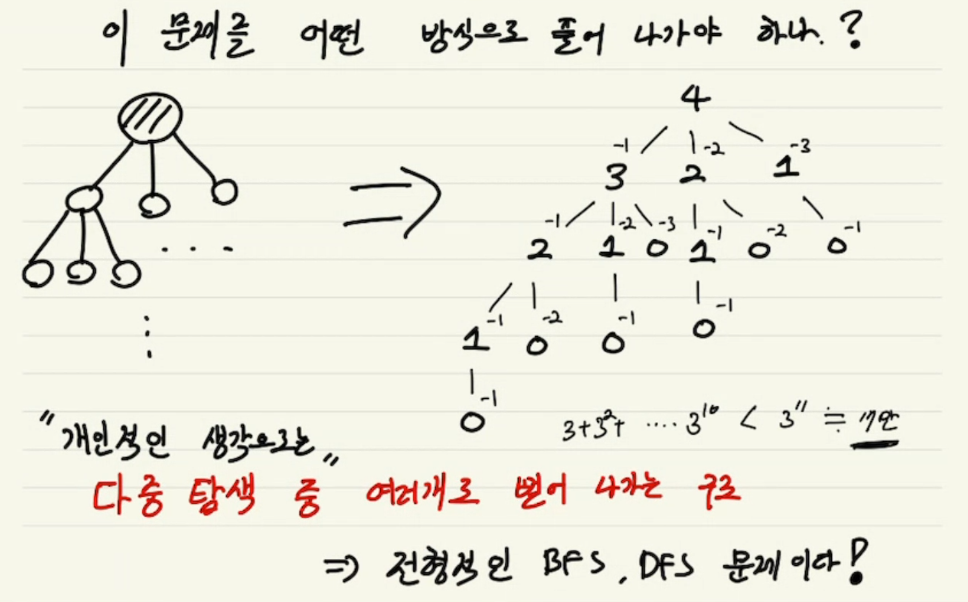 이 문제를 어떤 방식으로 풀어 나가야 하나.?
4
-1 -2 -3
3 2 1
-1 -2 -3 -1 -2 -1
2 1 0 1 0 0
-1 -2 -1 -1
1 0 0 0
-1
0
3+3²+ ....3¹⁰ < 3¹¹ ≒ 17만
"개인적인 생각으로는"
다중 탐색 중 여러개로 뻗어 나가는 구조
⇒ 전형적인 BFS, DFS 문제이다!